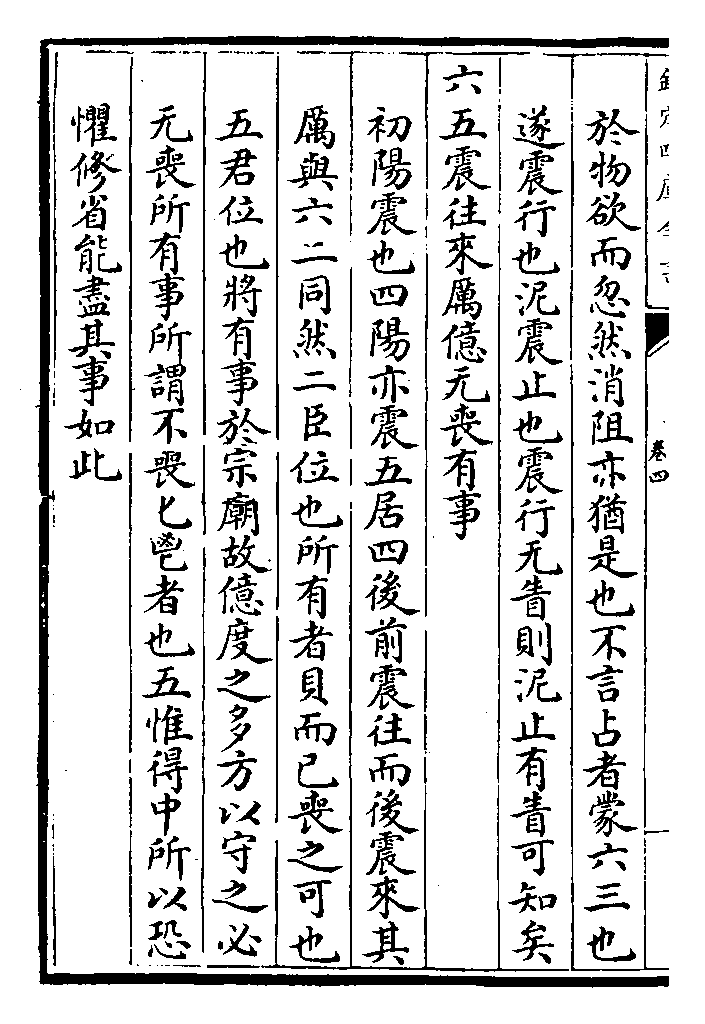 欽定四庫全書
卷四
於物欲而忽然消阻亦猶是也不言占者蒙六三也
遂震行也泥震止也震行无眚則泥止有眚可知矣
六五震往來厲億无喪有事
初陽震也四陽亦震五居四後前震往而後震來其
厲與六二同然二臣位也所有者貝而已喪之可也
五君位也將有事於宗廟故億度之多方以守之必
无喪所有事所謂不喪匕鬯者也五惟得中所以恐
懼修省能盡其事如此